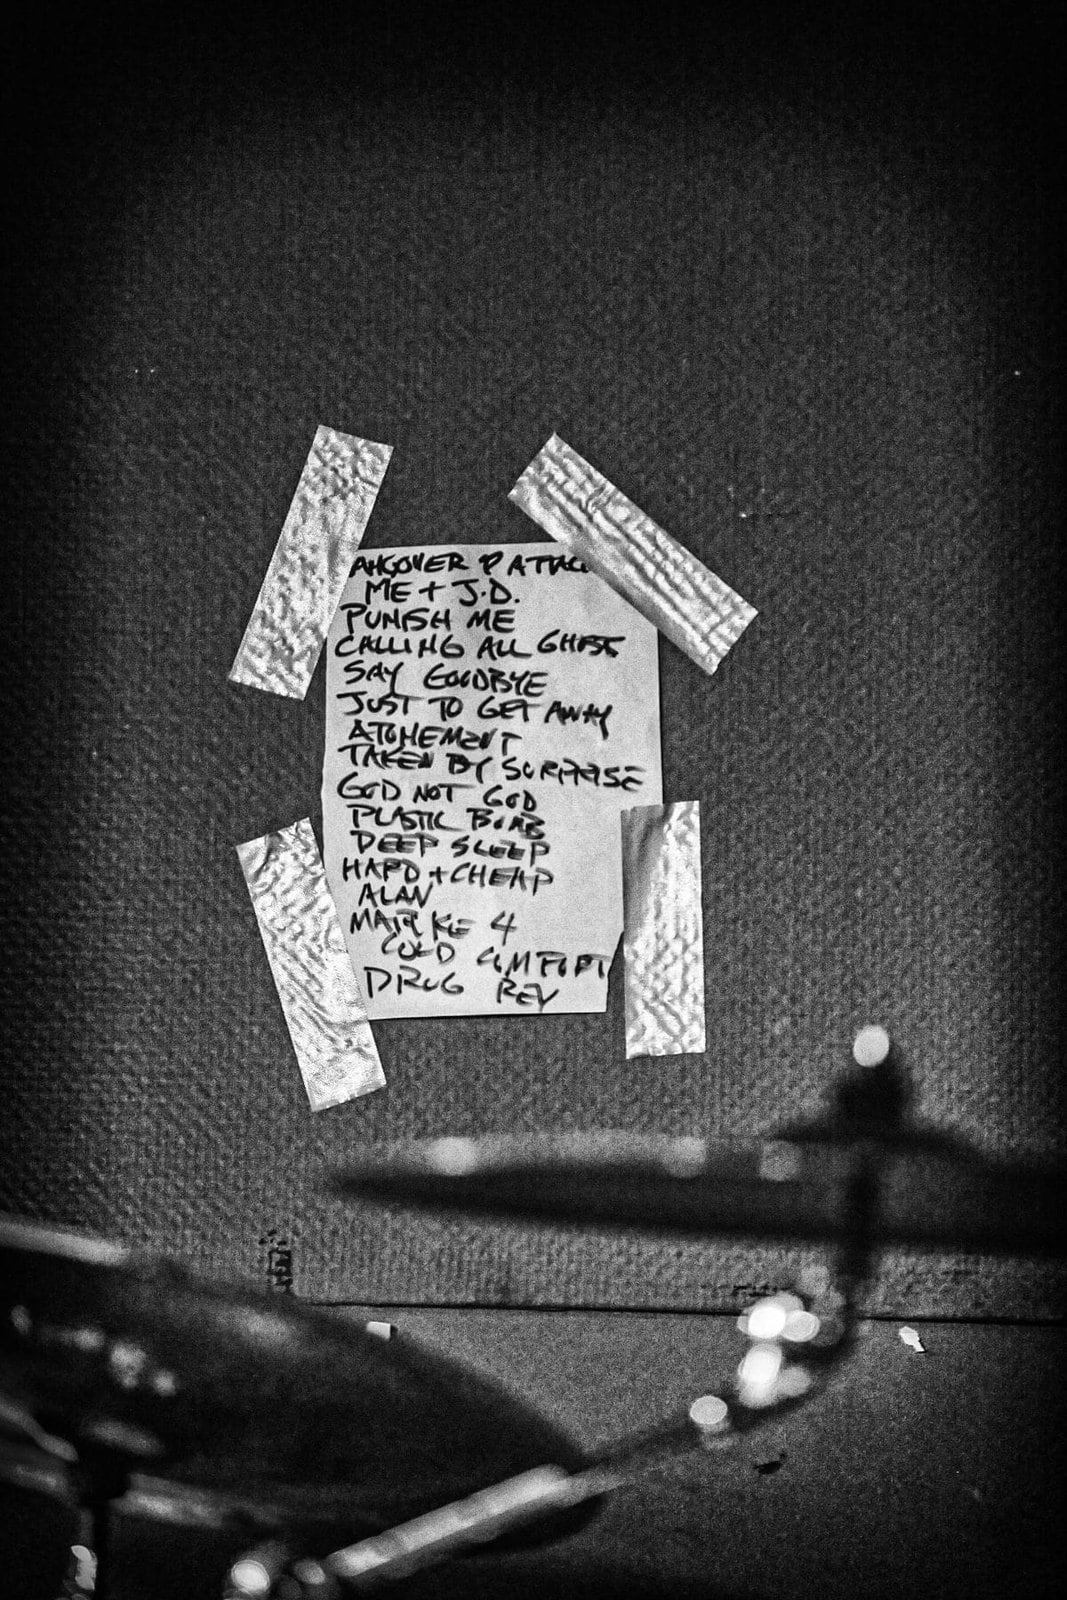 ANGOVER P ATTAC
ME + J.D.
PUNISH ME
CALLING ALL GHOSTS
SAY GOODBYE
JUST TO GET AWAY
ATONEMENT
TAKEN BY SURPRISE
GOD NOT GOD
PLASTIC BOMB
DEEP SLEEP
HARD + CHEAP
ALAN
MARK ME 4
COLD COMFORT
DRUG REV